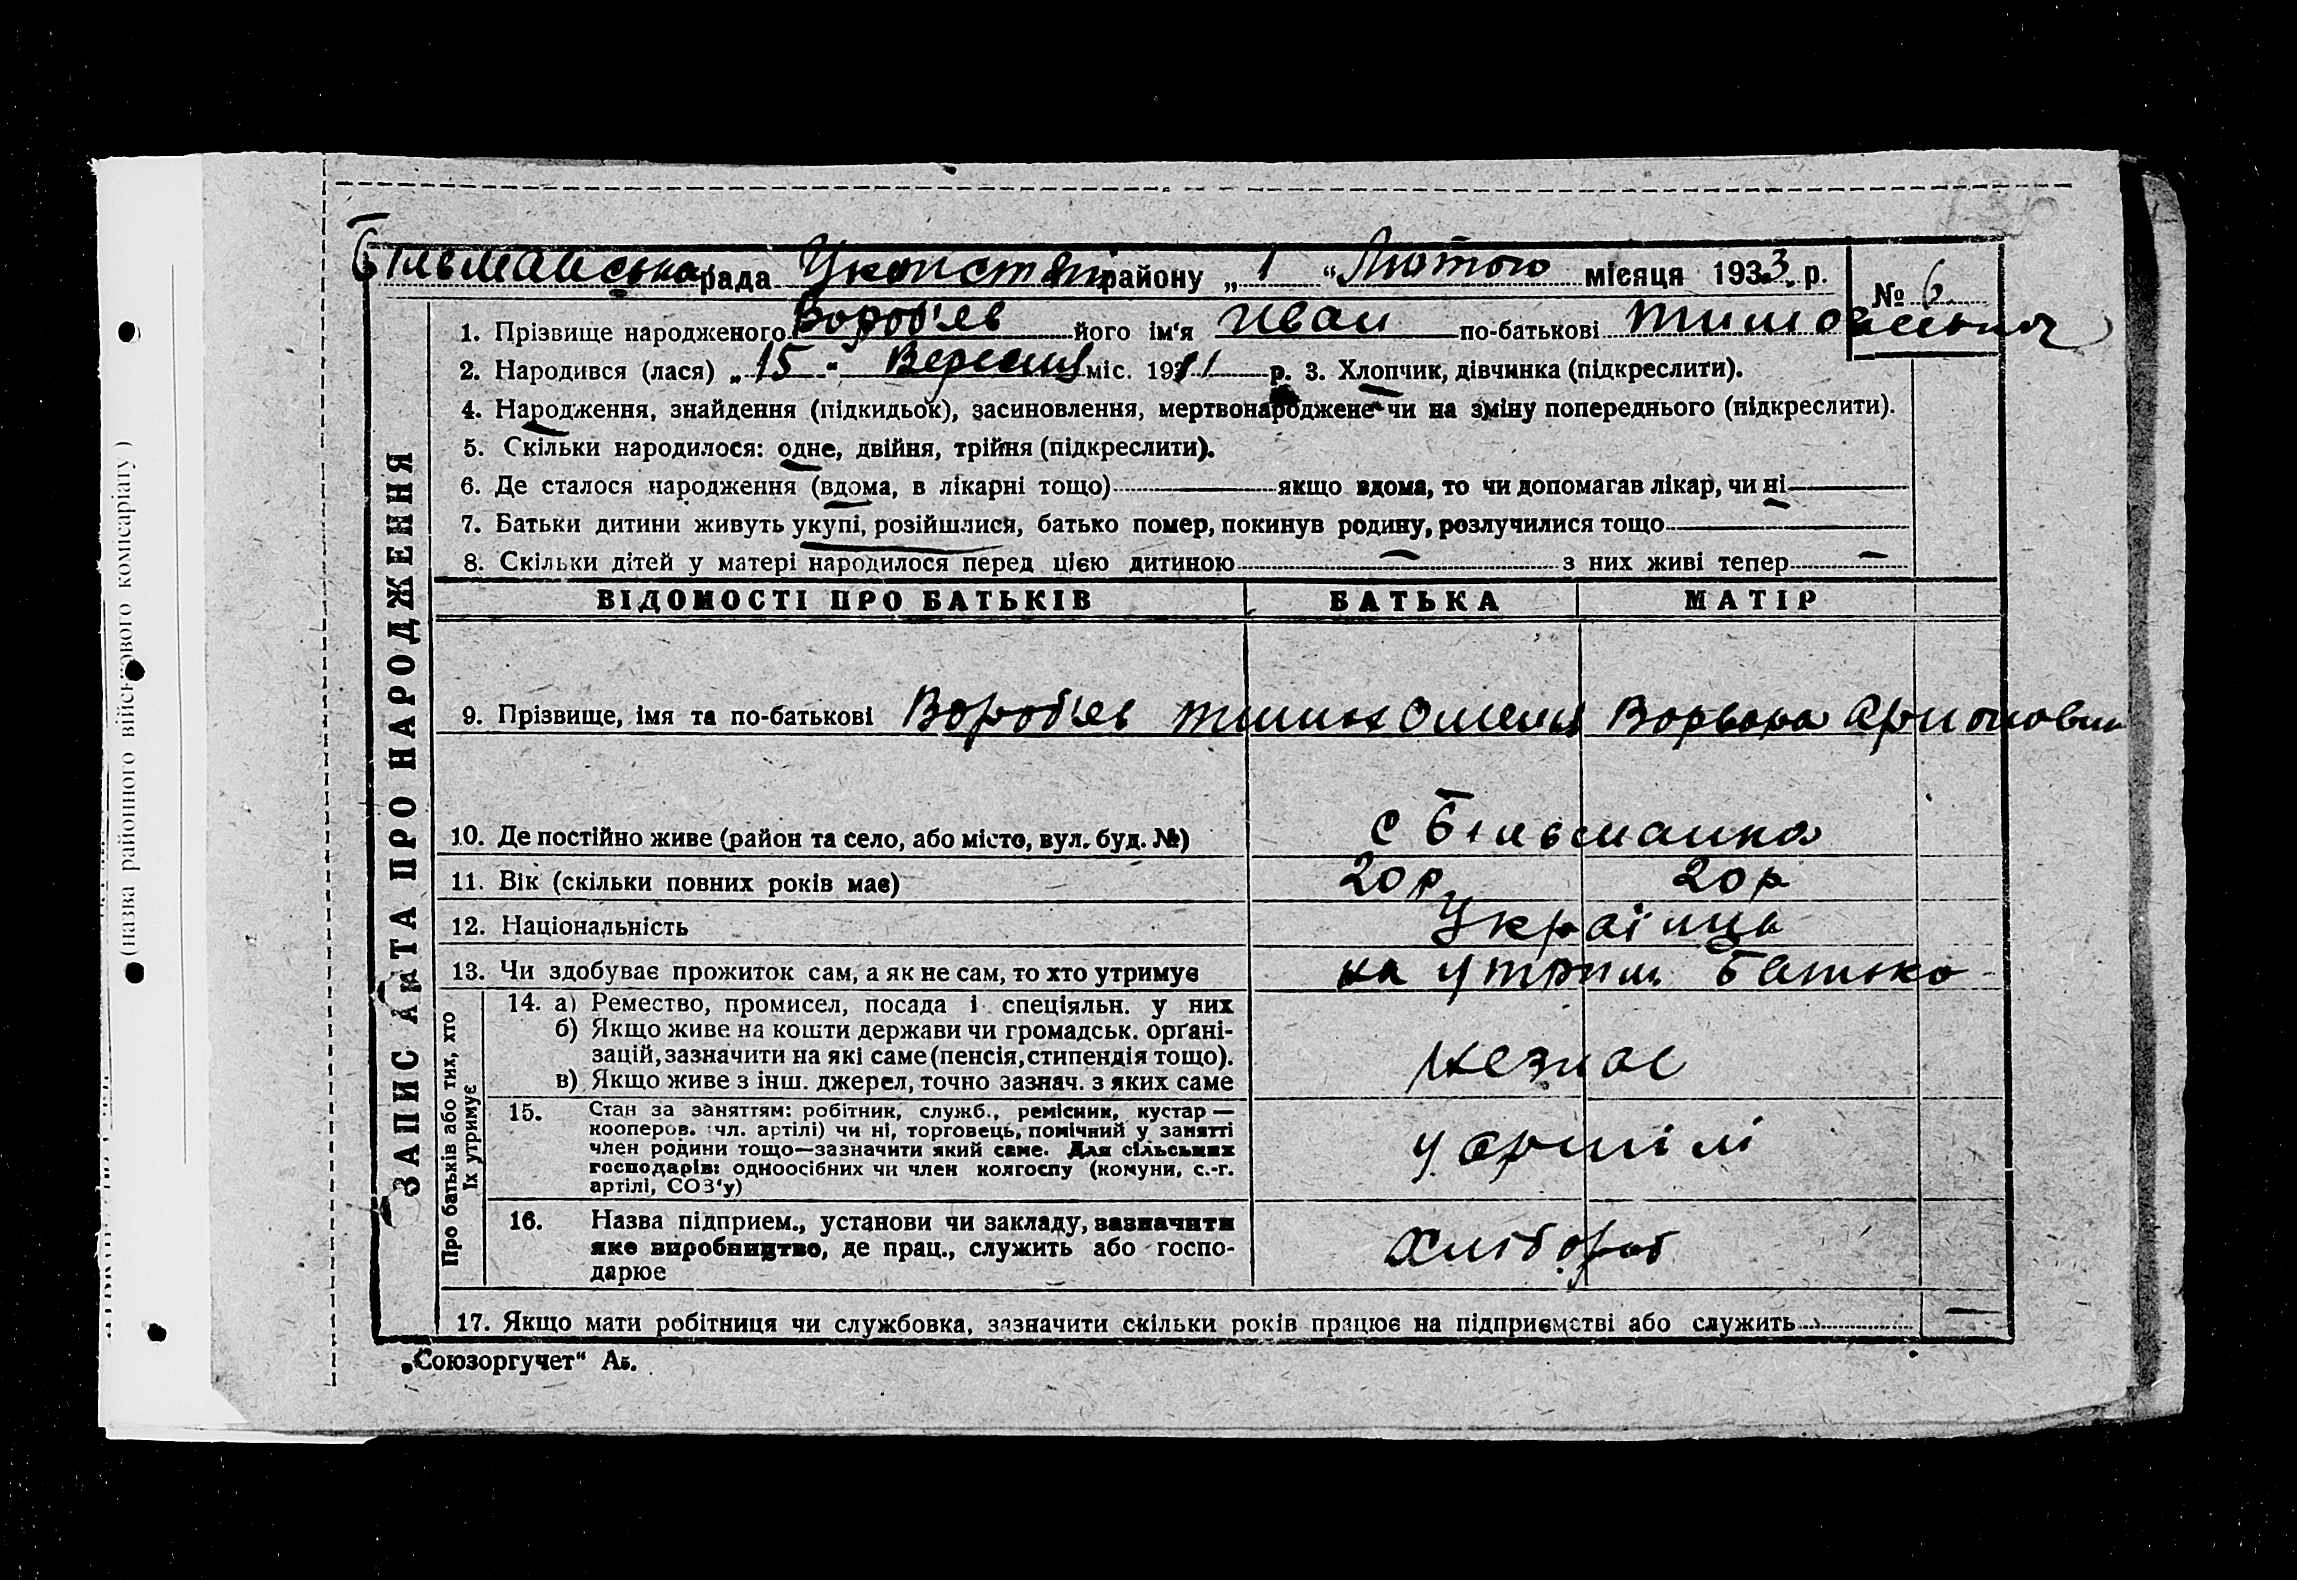 Більманська рада района „ 1 “ Лютого місяця 1933 р. № 6
1. Прізвище народженого Вороб'ев його ім'я Иван по-батькові
2. Народився (лася) „ 15 “ Вересня міс. 1911 р. 3. Хлопчик, дівчинка (підкреслити).
4. Народження, знайдення (підкидьок), засиновлення, мертвонароджене чи на зміну попереднього (підкреслити).
5. Скільки народилося: одне, двійня, трійня (підкреслити).
6. Де сталося народження (вдома, в лікарні тощо) якщо вдома, то чи допомагав лікар, чи ні
7. Батьки дитини живуть укупі, розійшлися, батько помер, покинув родину, розлучилися тощо
8. Скільки дітей у матері народилося перед цією дитиною — з них живі тепер —
ЗАПИС АКТА ПРО НАРОДЖЕННЯ
ВІДОМОСТІ ПРО БАТЬКІВ БАТЬКА МАТІР
9. Прізвище, імя та по-батькові Вороб'ев Варвара
10. Де постійно живе (район та село, або місто, вул. буд. №) с Більманка
11. Вік (скільки повних років має) 20 р 20 р
12. Національність Українць
13. Чи здобуває прожиток сам, а як не сам, то хто утримує на утрим. батько
Про батьків або тих, хто їх утримує
14. а) Ремество, промисел, посада і спеціяльн. у них
б) Якщо живе на кошти держави чи громадськ. орґані-
зацій, зазначити на які саме (пенсія, стипендія тощо).
в) Якщо живе з інш. джерел, точно зазнач. з яких саме
незнає
15. Стан за заняттям: робітник, служб., ремісник, кустар —
кооперов. (чл. артілі) чи ні, торговець, помічний у занятті
член родини тощо—зазначити який саме. Для сільських
господарів: одноосібних чи член колгоспу (комуни, с.-г.
артілі, СОЗ'у)
у артілі
16. Назва підприєм., установи чи закладу, зазначити
яке виробництво, де прац., служить або госпо-
дарює
хлібороб
17. Якщо мати робітниця чи службовка, зазначити скільки років працює на підприємстві або служить —
„Союзоргучет“ Аб.
(назва районного військового комісаріату)